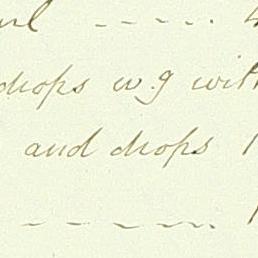 drops w.g with
and drops 1